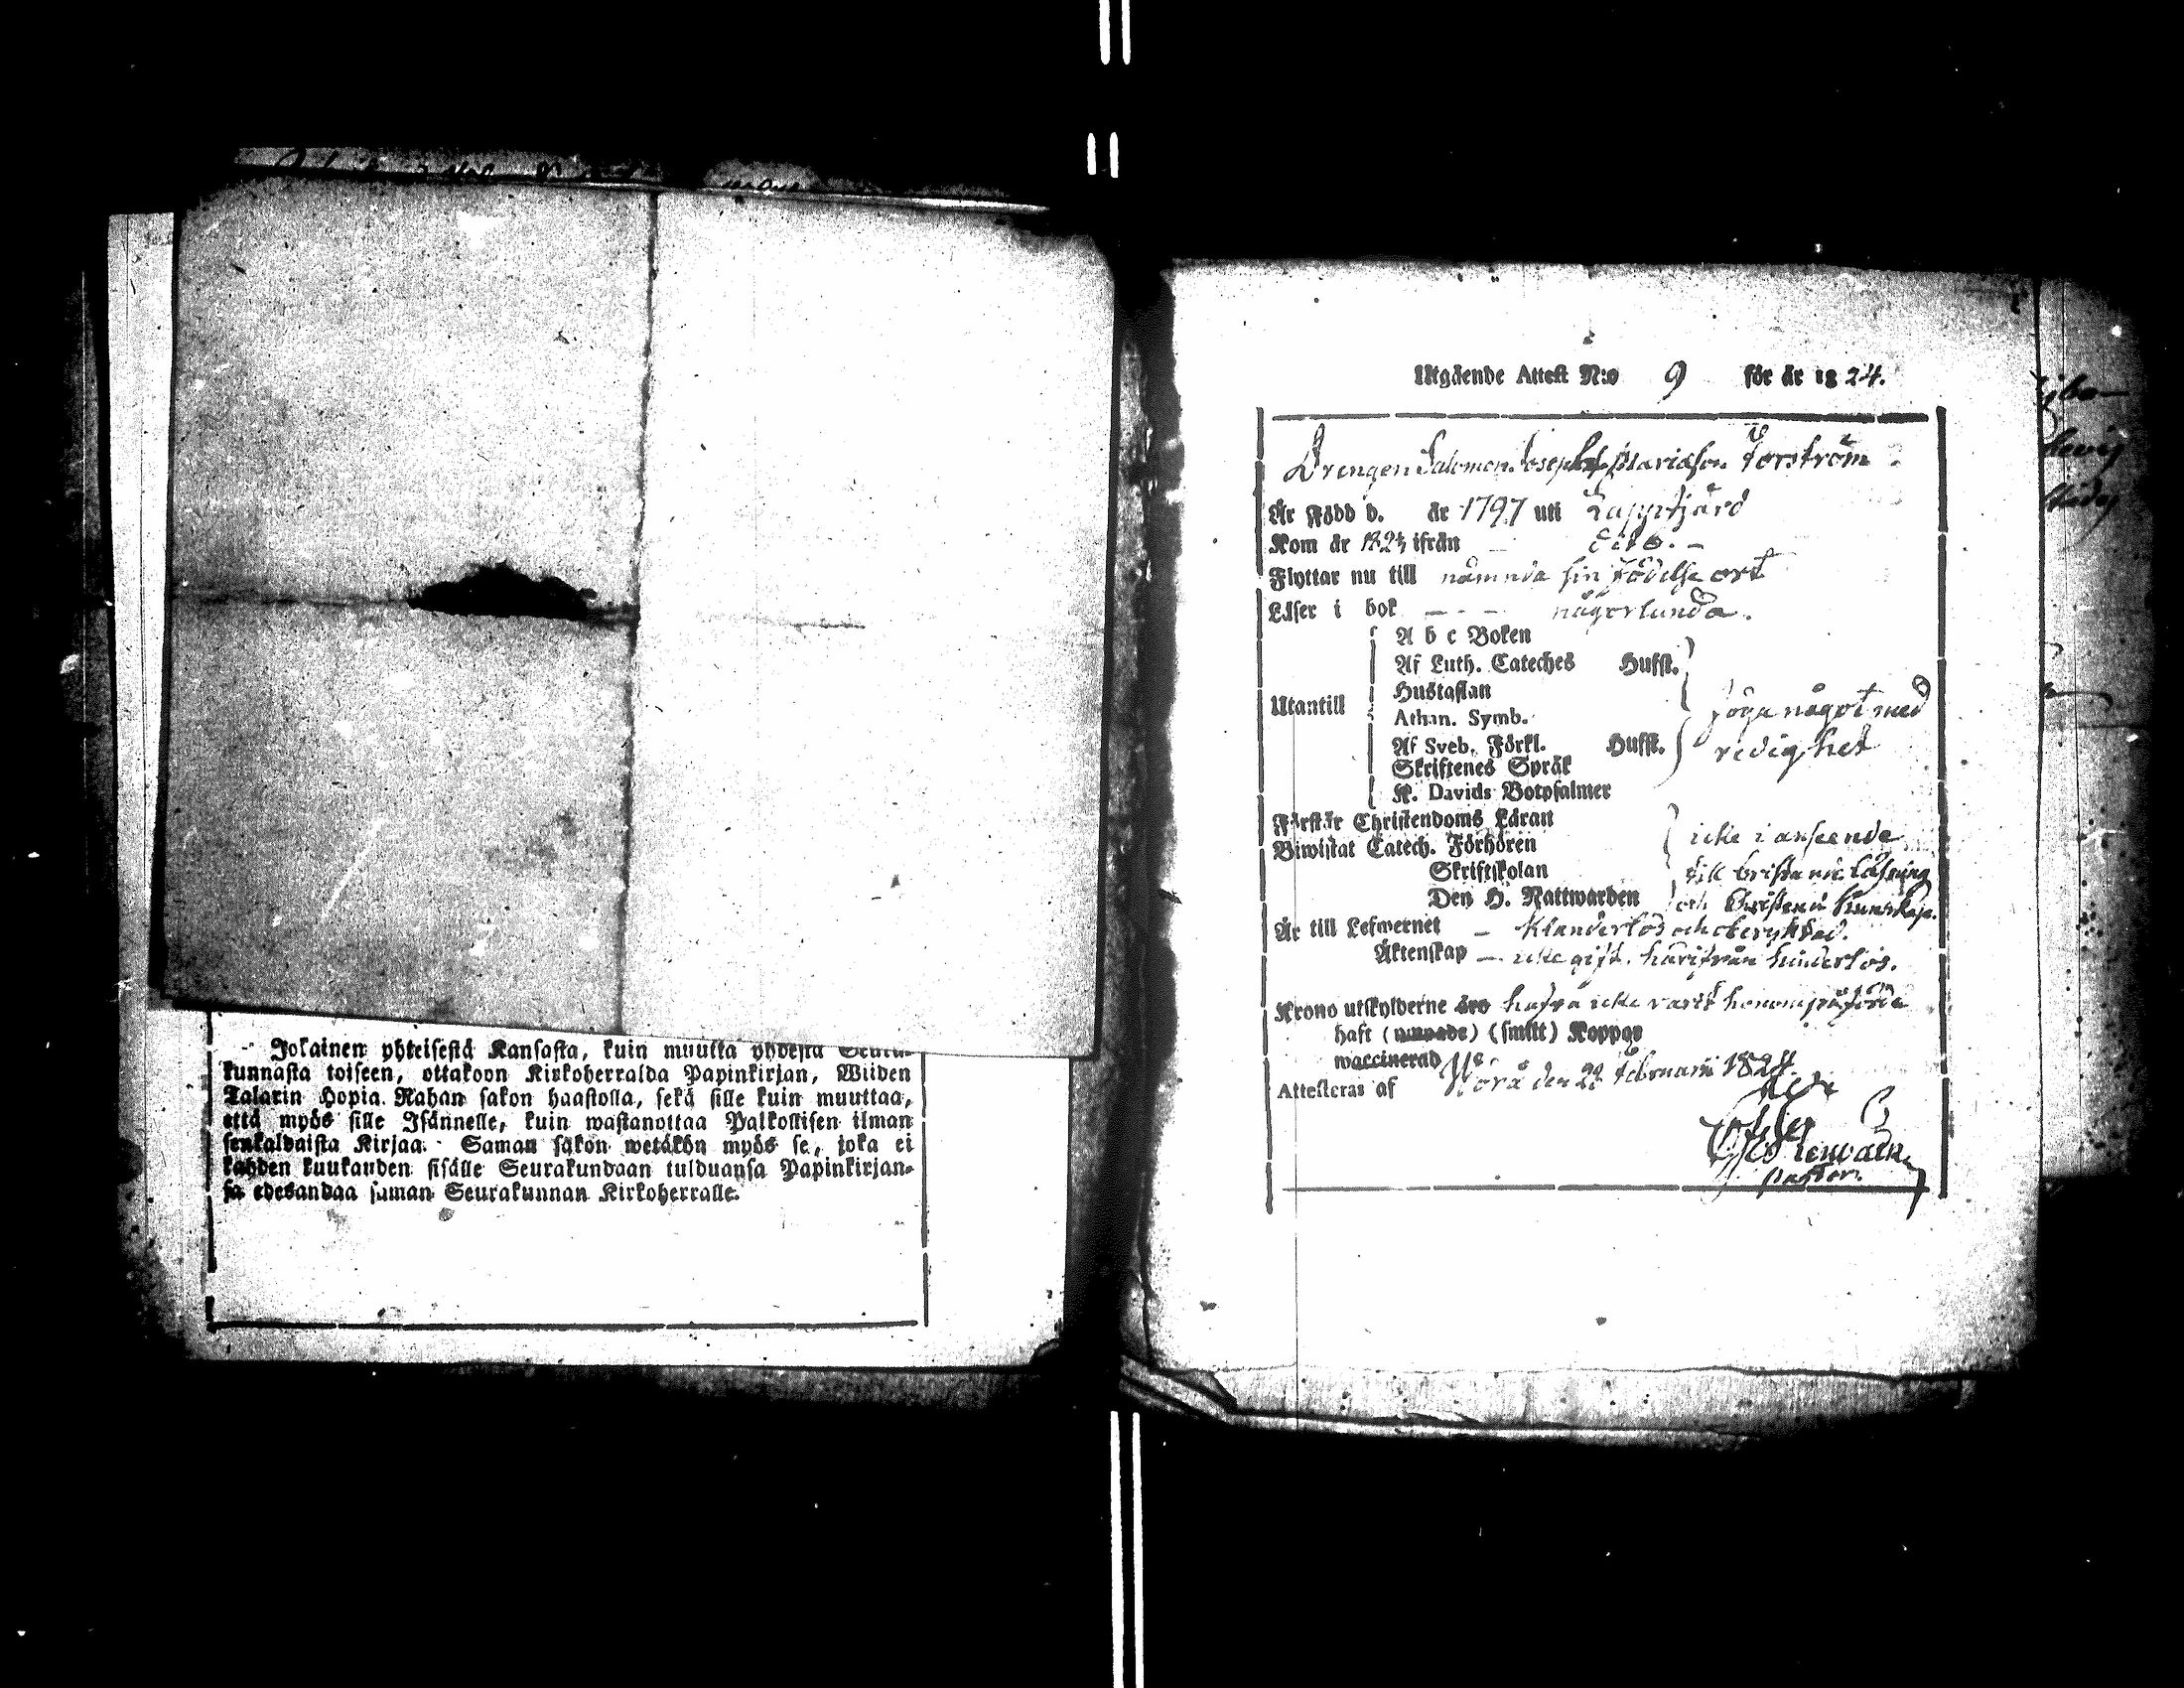 Jokainen yhteisestä Kansasta, kuin muutta yhdestä Seura-
kunnasta toiseen, ottakoon Kirkoherralda Papinkirjan, Wiiden
Talarin Hopia Rahan sakon haastolla, sekä sille kuin muuttaa,
että myös sille Isännelle, kuin wastanottaa Palkollisen ilman
senkaldaista Kirjaa. Saman sakon wetäkön myös se, joka ei
kahden kuukauden sisälle Seurakundaan tulduansa Papinkirjan-
sa edesandaa saman Seurakunnan Kirkoherralle.
Utgående Attest N:o 9 för år 1824.
Drengen Salomon Josephs
Är Född d. år 1797 uti Lappfjärd
Kom år 1823 ifrån dito. -
Flyttar nu till nämnda sin födelse ort
Läser i bok - - - någorlunda.
A b c Boken
Af Luth. Cateches Hufst.
Hustaflan
Utantill
Athan. Symb.
föga något med
Af Sveb. Förkl. Hufst.
redighet
Skriftenes Språk
K. Davids Botpsalmer
Förstår Christendoms Läran
Biwistat Catech. Förhören
icke i anseende
Skriftskolan
till brist an i läsning
Den H. Nattwarden
och Christen kunskap.
Är till Lefwernet - klanderlös och oberyktad.
Äktenskap - icke gift, härifrån hinderlös.
Krono utskylderne äro hafva icke varit honom påförde
haft (numade) (smitt) Koppor
waccinerad
Attesteras af Mörå den 28 Februarii 1824.
Pastor.